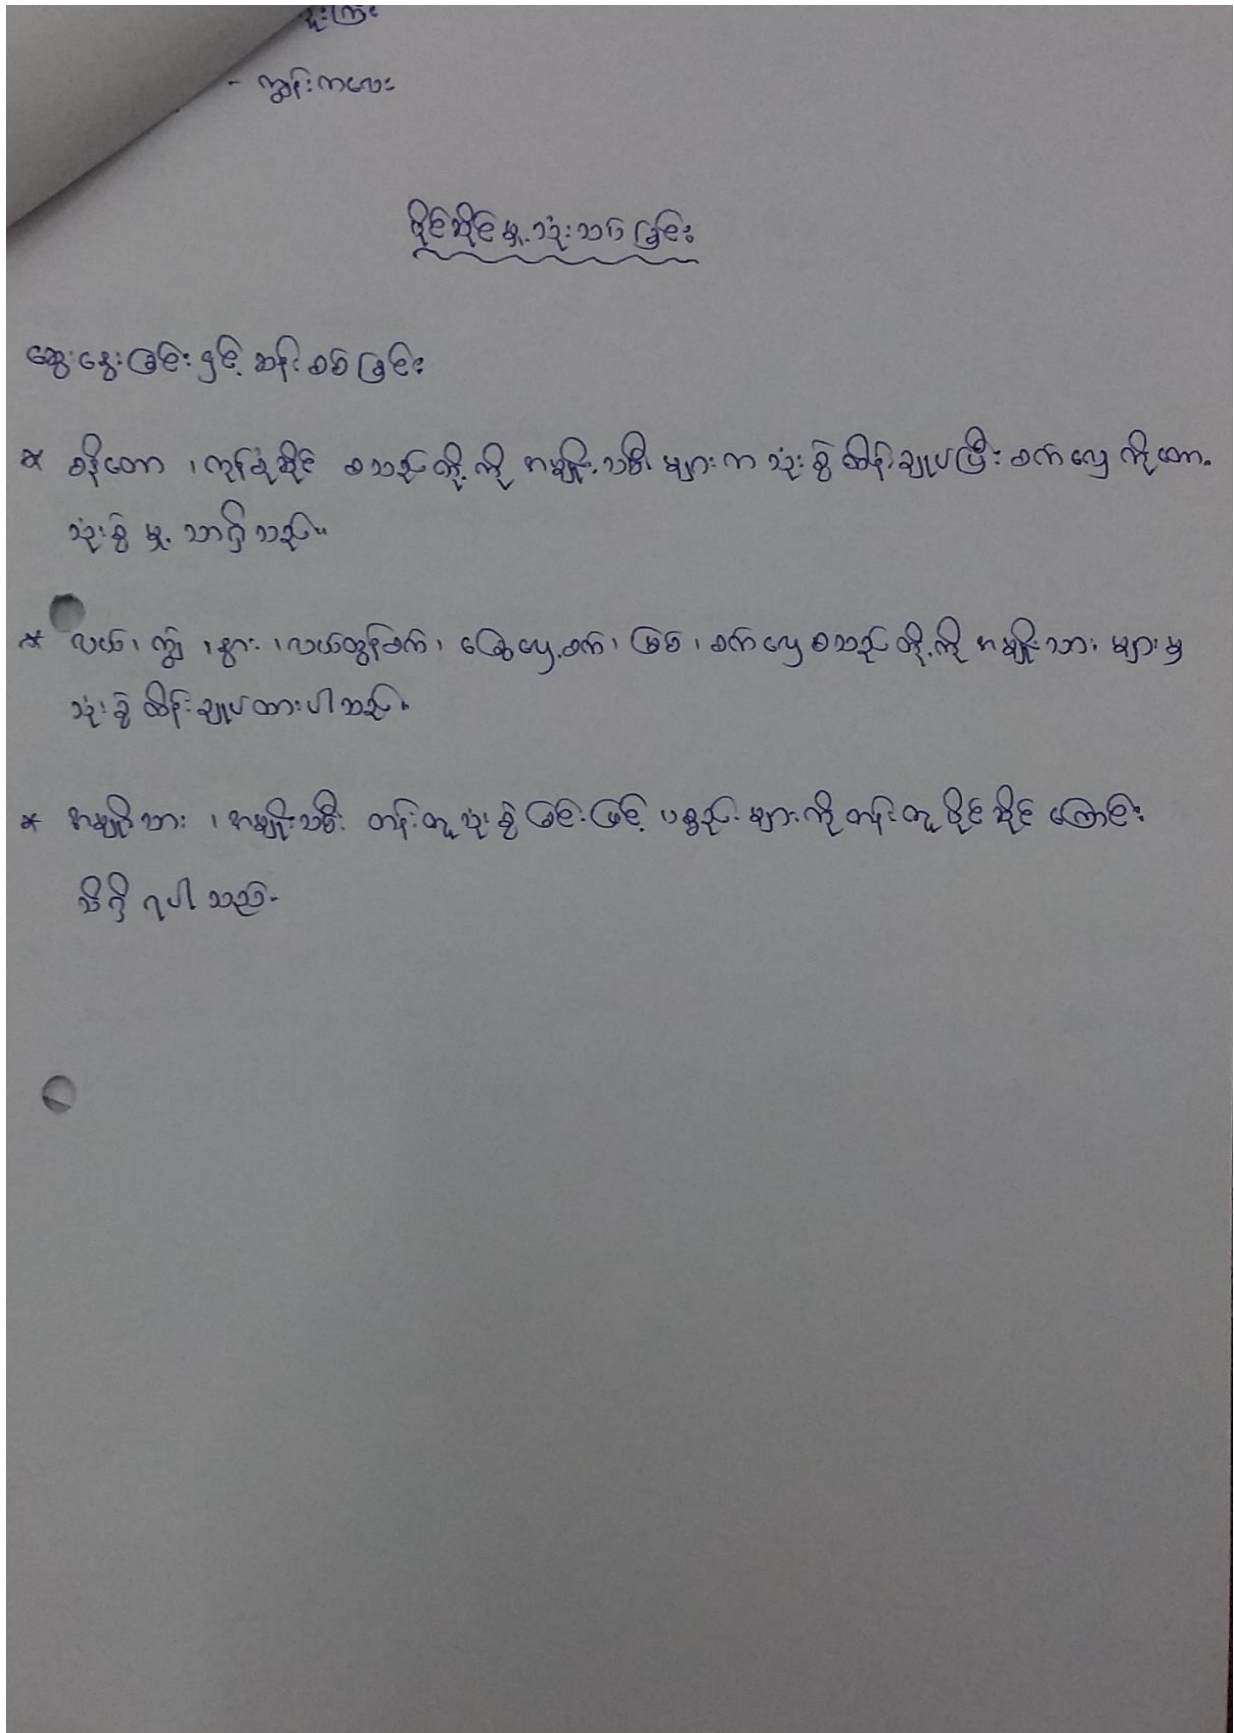 - ကျွန်းကလေး
ပိုင်ဆိုင်မှု့သုံးသပ်ခြင်း
ဆွေးနွေးခြင်းနှင့် ဆန်းစစ်ခြင်း
* စနိုတော ၊ ကုန်စုံဆိုင် စသည်တို့ကို အမျိုးသမီးများက သုံးစွဲထိန်းချုပ်ပြီး စက်လှေကိုတော့
သုံးစွဲမှု့ သာရှိသည်။
* လယ်၊ ကျွဲ ၊ နွား ၊ လယ်ထွန်စက်၊ ခြွေလှေ့စက်၊ မြစ် ၊ စက်လှေ စသည်တို့ကို အမျိုးသားများမှ
သုံးစွဲထိန်းချုပ်ထားပါသည်။
* အမျိုးသား ၊ အမျိုးသမီး တန်းတူသုံးစွဲခြင်းဖြင့် ပစ္စည်းများကိုတန်းတူပိုင်ဆိုင်ကြောင်း
သိရှိရပါသည်။